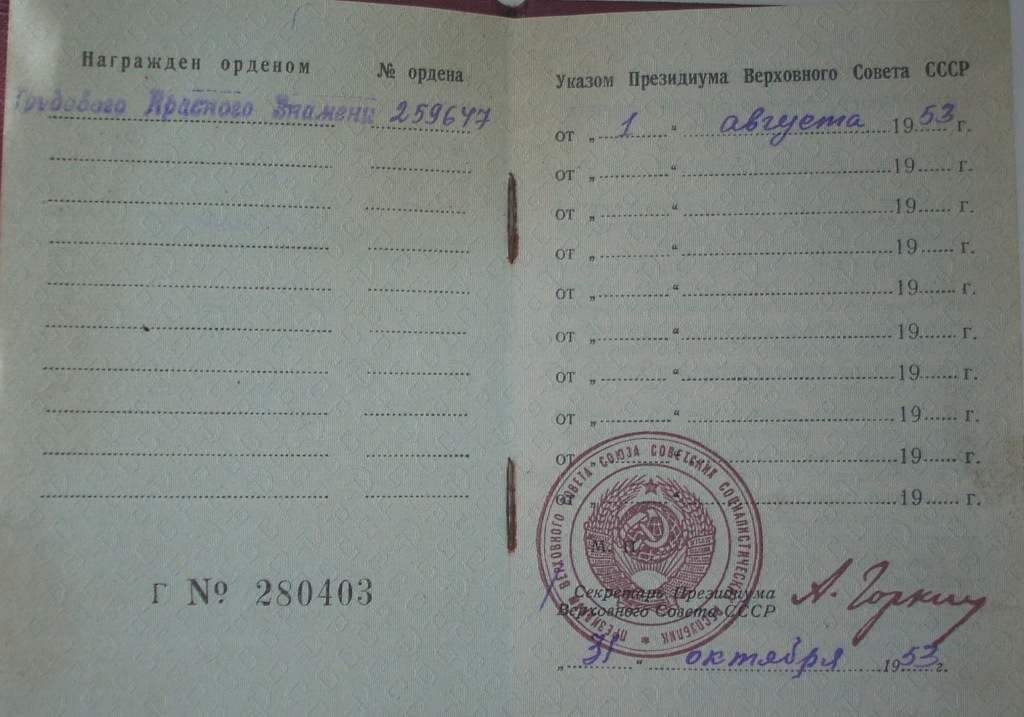 Награжден орденом № ордена
Трудового Красного Знамени 259647
Г № 280403
Указом Президиума Верховного Совета СССР
от „ 1 “ августа 1953 г.
от „ “ 19 г.
от „ “ 19 г.
от „ “ 19 г.
от „ “ 19 г.
от „ “ 19 г.
от „ “ 19 г.
от „ “ 19 г.
от „ “ 19 г.
от „ “ 19 г.
ПРЕЗИДИУМ ВЕРХОВНОГО СОВЕТА СОЮЗА СОВЕТСКИХ СОЦИАЛИСТИЧЕСКИХ РЕСПУБЛИК
М. П.
Секретарь Президиума
Верховного Совета СССР А. Горкин
„ 31 “ октября 1953 г.